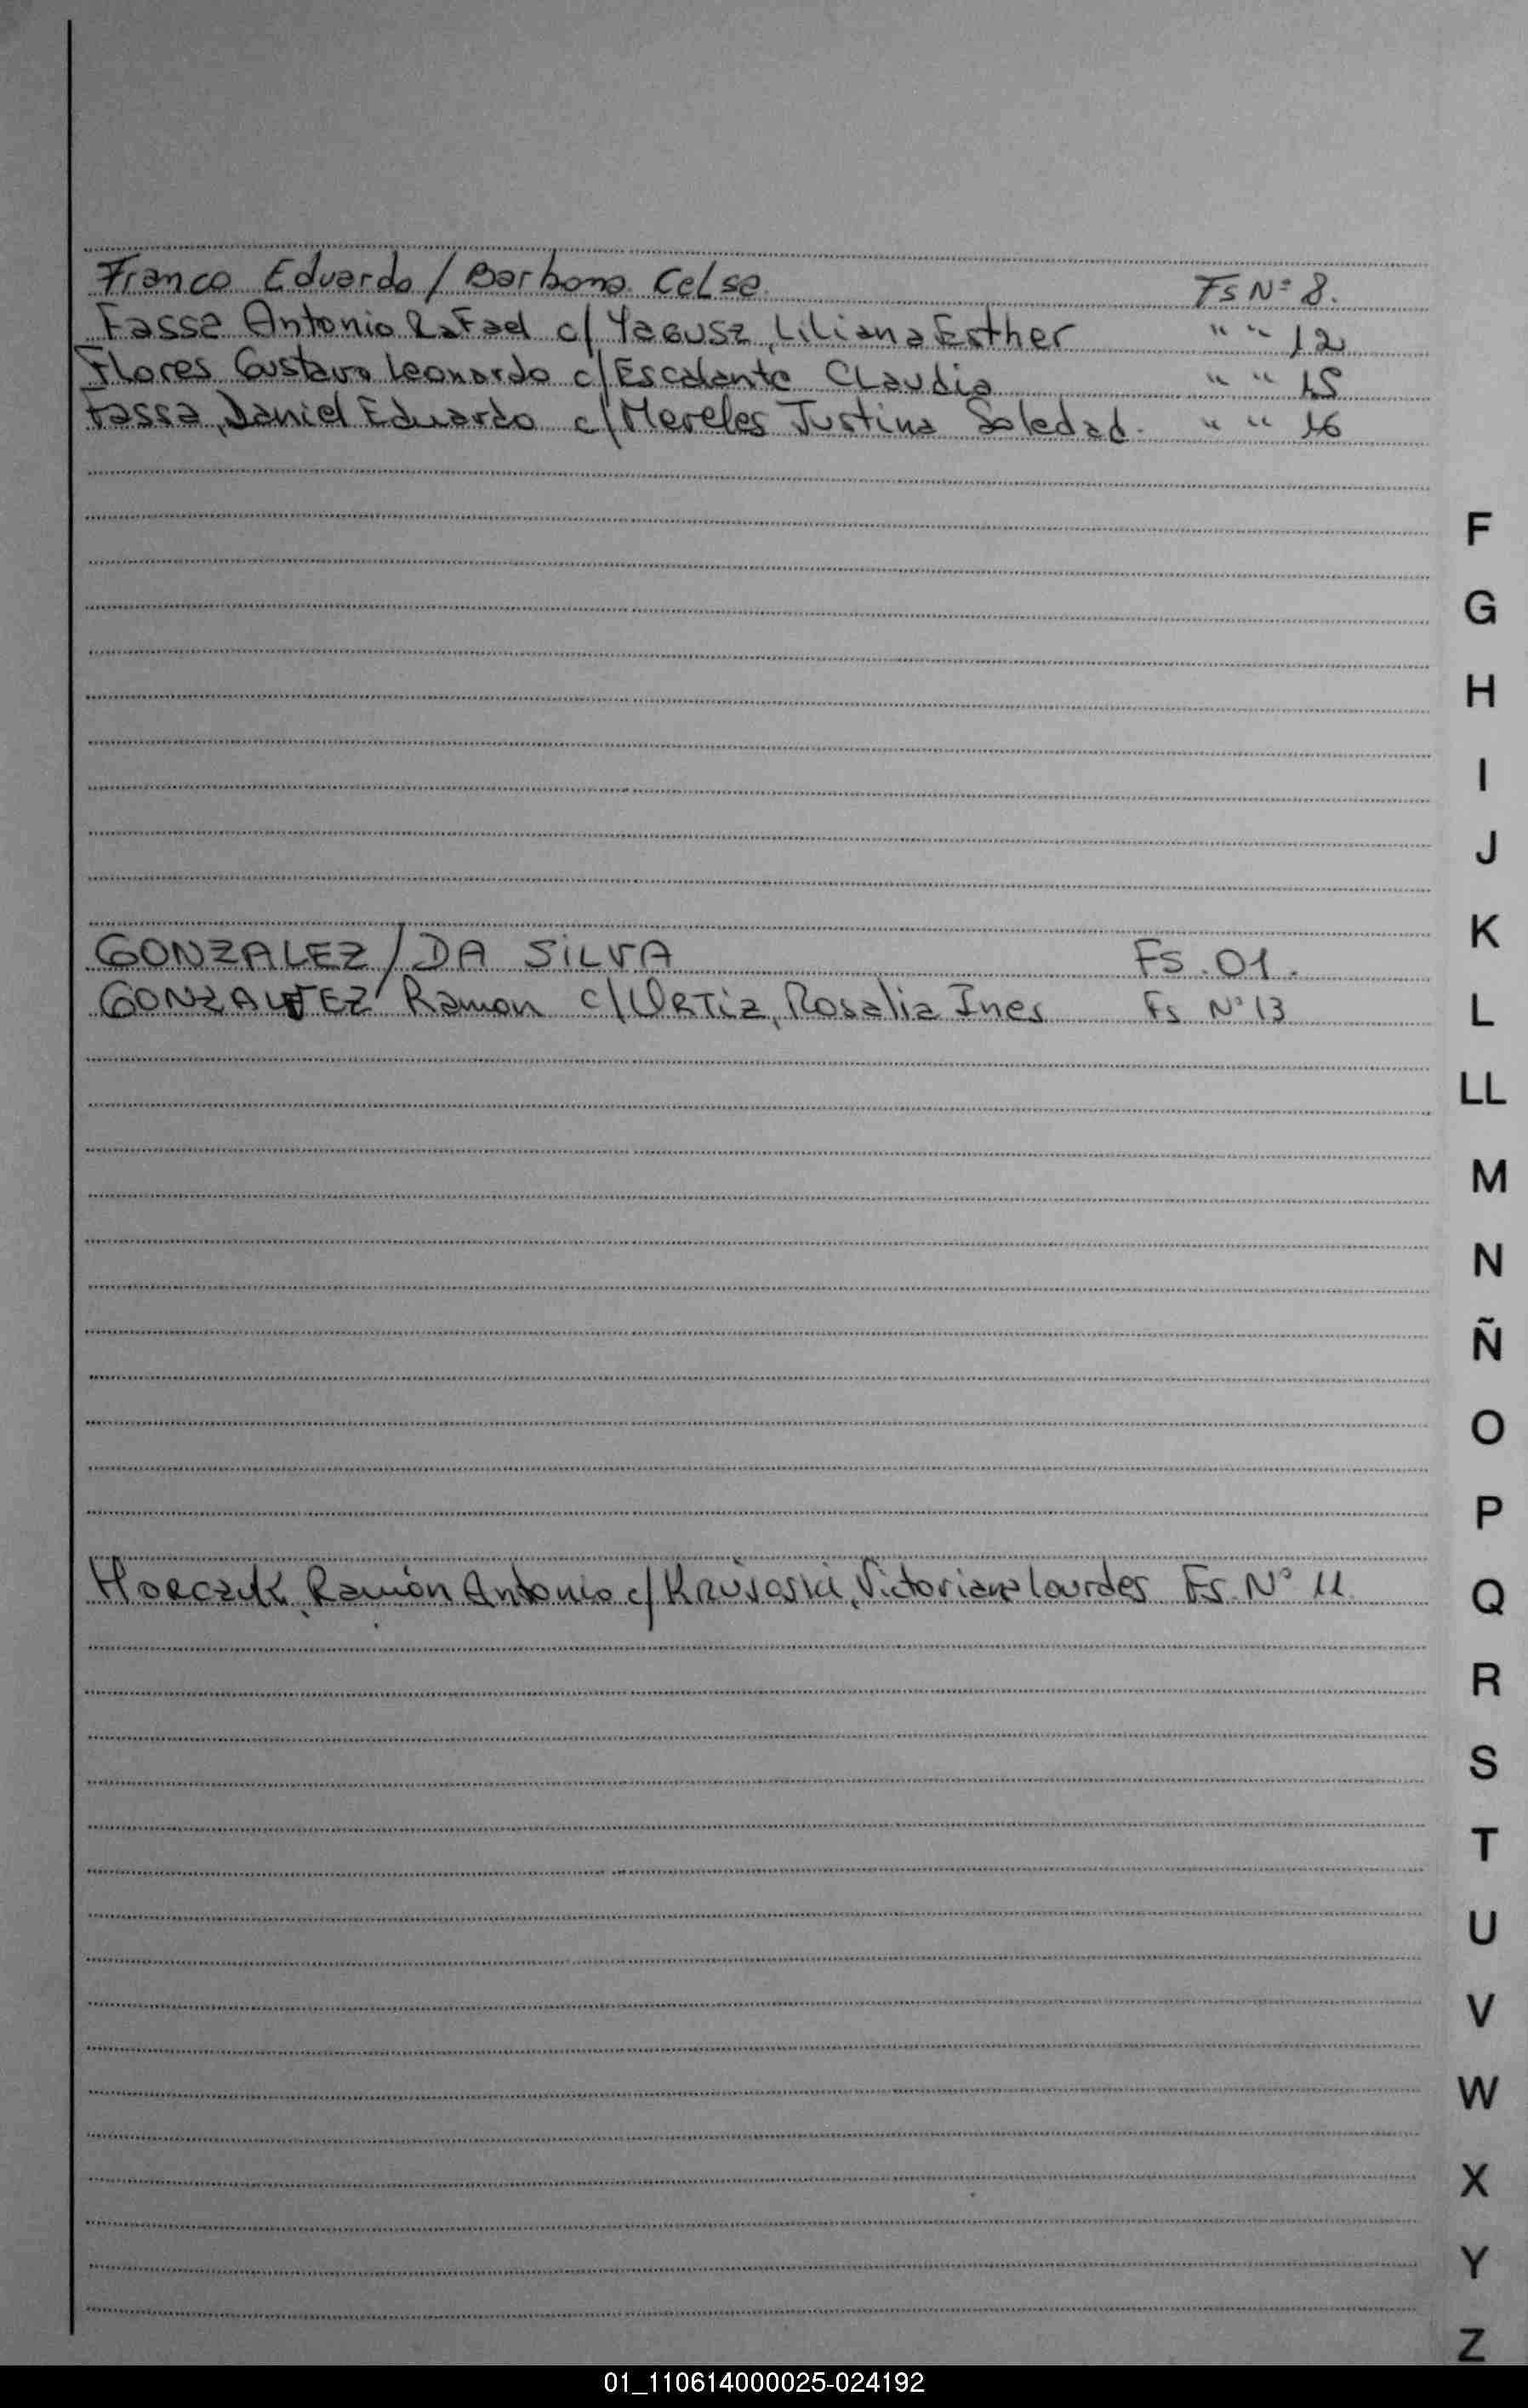 Franco Eduardo / Barbona Celsa Fs Nº 8.
Fassa Antonio Rafael c/ Yagusz, Liliana Esther " " 12
Flores Gustavo Leonardo c/ Escalante Claudia " " 15
Fassa, Daniel Eduardo c/ Mereles Justina Soledad. " " 16
F
G
H
I
J
K
GONZALEZ / DA SILVA Fs. 01.
Ramon c/ Ortiz, Rosalia Ines Fs Nº 13
L
LL
M
N
Ñ
O
P
Ramón Antonio c/ Victoriana Lourdes Fs. Nº 11
Q
R
S
T
U
V
W
X
Y
Z
01_110614000025-024192